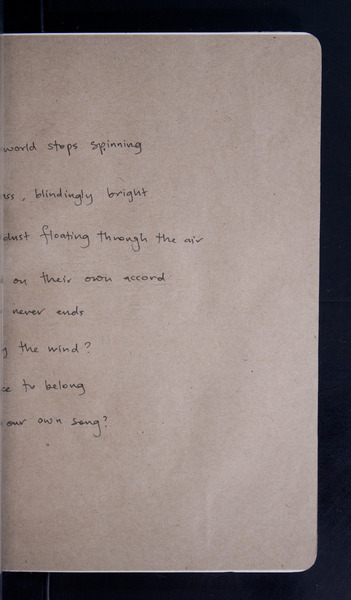 world stops spinning
, blindingly bright
dust floating through the air
on their own accord
never ends
the wind?
to belong
our own song?